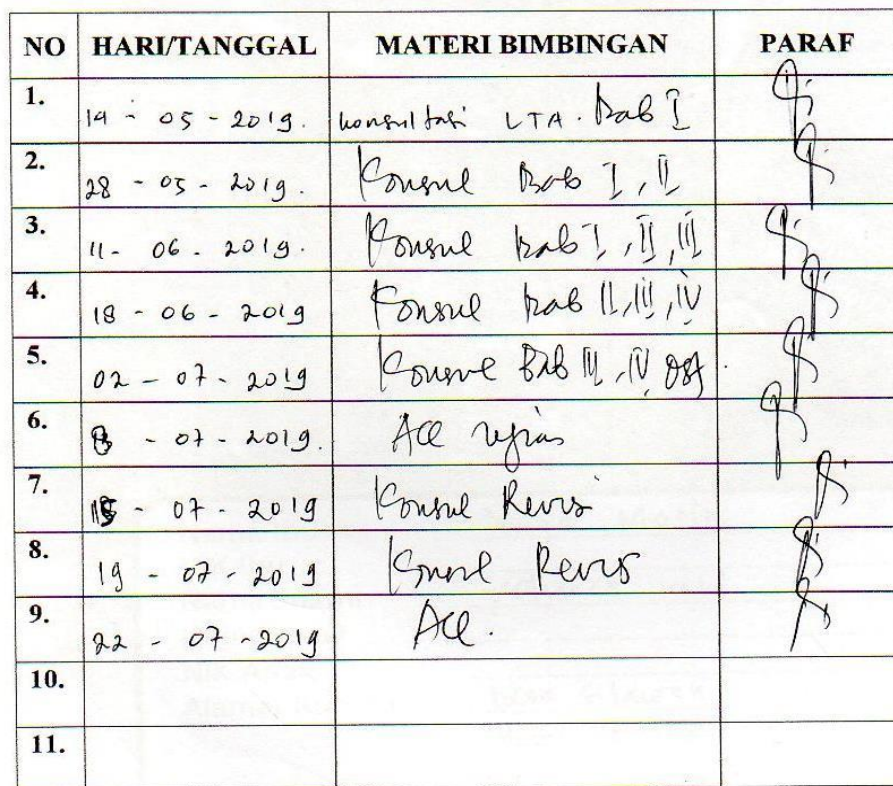 NO HARI/TANGGAL MATERI BIMBINGAN PARAF
1. 14 - 05 - 2019. konsultasi LTA. Bab I
2. 28 - 05 - 2019. Konsul Bab I, II
3. 11 - 06 - 2019. Konsul bab I, II, III
4. 18 - 06 - 2019 Konsul bab II, III, IV
5. 02 - 07 - 2019 Konsul Bab III, IV
6. - 07 - 2019. Acc
7. 15 - 07 - 2019 Konsul Revisi
8. 19 - 07 - 2019 Konsul Revisi
9. 22 - 07 - 2019 Acc.
10.
11.